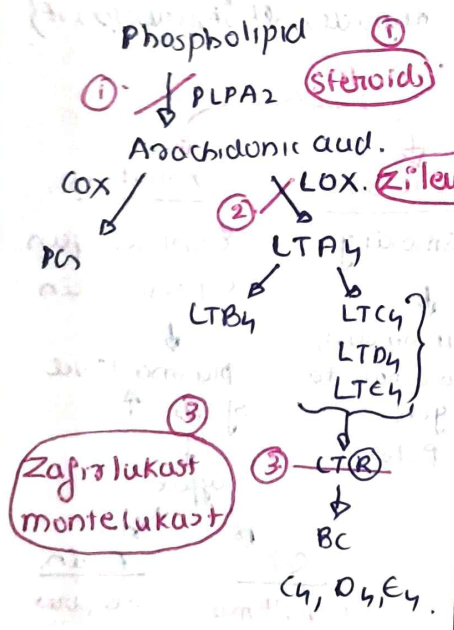 Phospholipid
①
① PLPA2 Steroids
Arachidonic acid.
COX ② LOX. Zileu
PGs LTA4
LTB4 LTC4
LTD4
LTE4
③
Zafirlukast ③ LT R
montelukast
BC
C4, D4, E4.